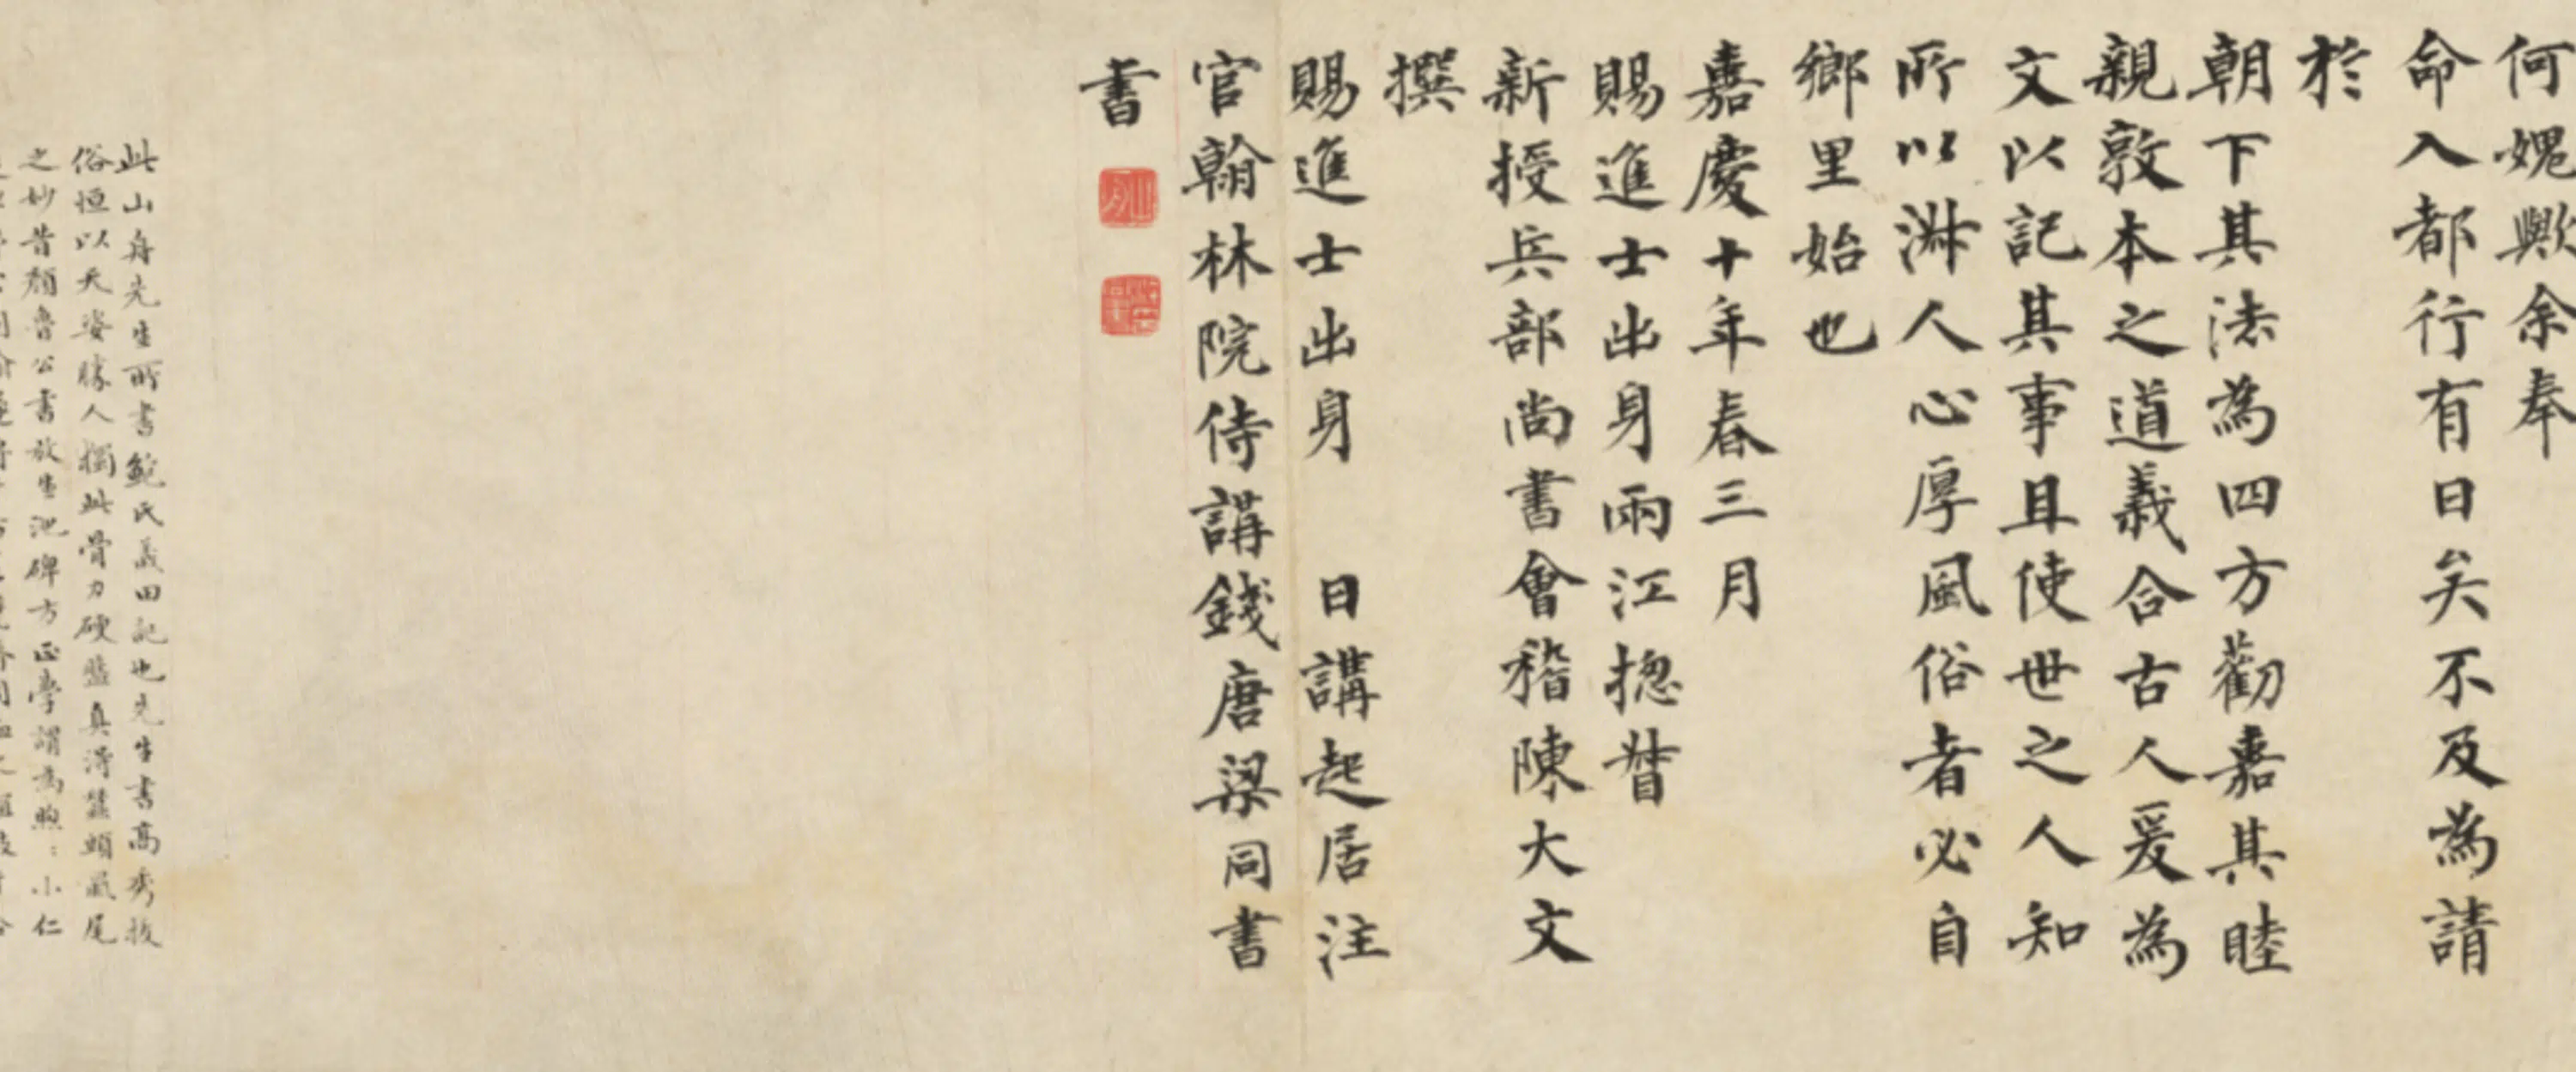 何媿歟余奉
命入都行有日矣不及為請
於
朝下其法為四方勸嘉其睦
親敦本之道義合古人爰為
文以記其事且使世之人知
所以淋人心厚風俗者必自
鄉里始也
嘉慶十年春三月
賜進士出身兩江揔督
新授兵部尚書會稽陳大文
撰
賜進士出身 日講起居注
官翰林院侍講錢唐梁同書
書
此山舟先生所書鮑氏義田記也先生書高秀拔
俗恒以天姿勝人獨此骨力硬盤真得蠶頭蠆尾
之妙昔顏魯公書放生池碑方正學謂為煦:小仁